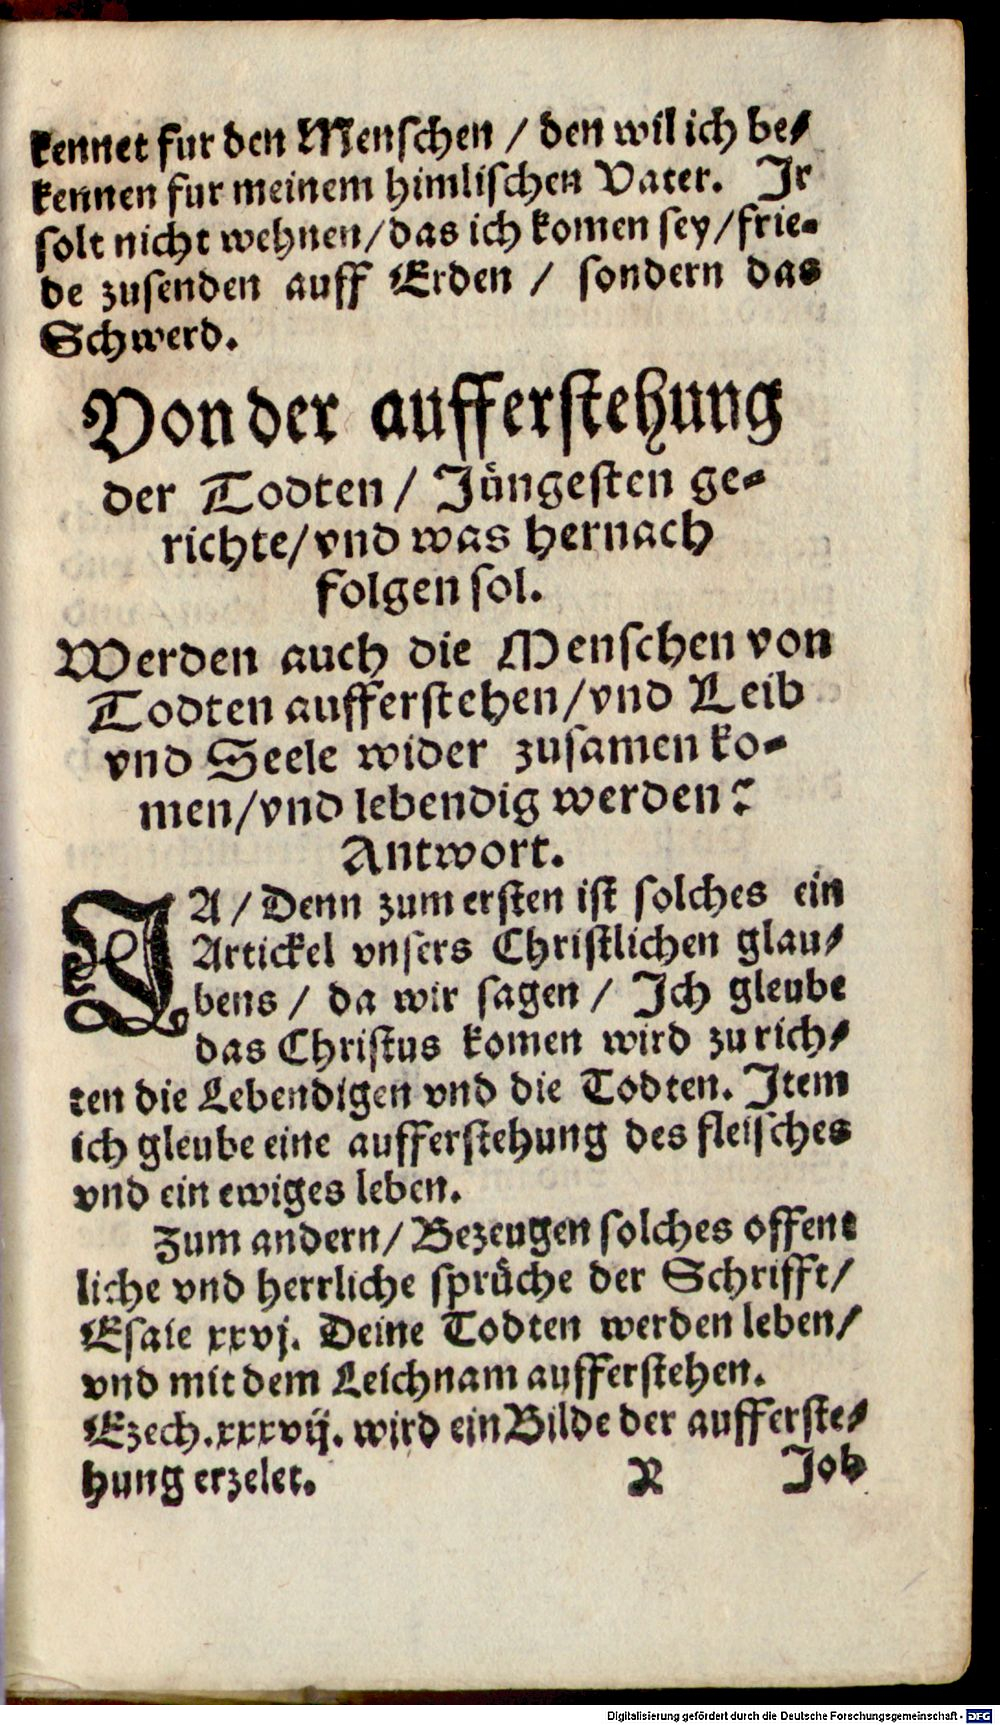 kennet fur den Menschen / den wil ich be-
kennen fur meinem himlischen Vater. Jr
solt nicht wehnen / das ich komen sey / frie-
de zusenden auff Erden / sondern das
Schwerd.
Von der aufferstehung
der Todten / Jüngesten ge-
richte / vnd was hernach
folgen sol.
Werden auch die Menschen von
Todten aufferstehen / vnd Leib
vnd Seele wider zusamen ko-
men / vnd lebendig werden?
Antwort.
JA / Denn zum ersten ist solches ein
Artickel vnsers Christlichen glau-
bens / da wir sagen / Jch gleube
das Christus komen wird zu rich-
ten die Lebendigen vnd die Todten. Jtem
ich gleube eine aufferstehung des fleisches
vnd ein ewiges leben.
Zum andern / Bezeugen solches offent
liche vnd herrliche sprüche der Schrifft /
Esaie xxvj. Deine Todten werden leben /
vnd mit dem Leichnam aufferstehen.
Ezech. xxxvij. wird ein Bilde der aufferste-
hung erzelet. R Job
Digitalisierung gefördert durch die Deutsche Forschungsgemeinschaft - DFG